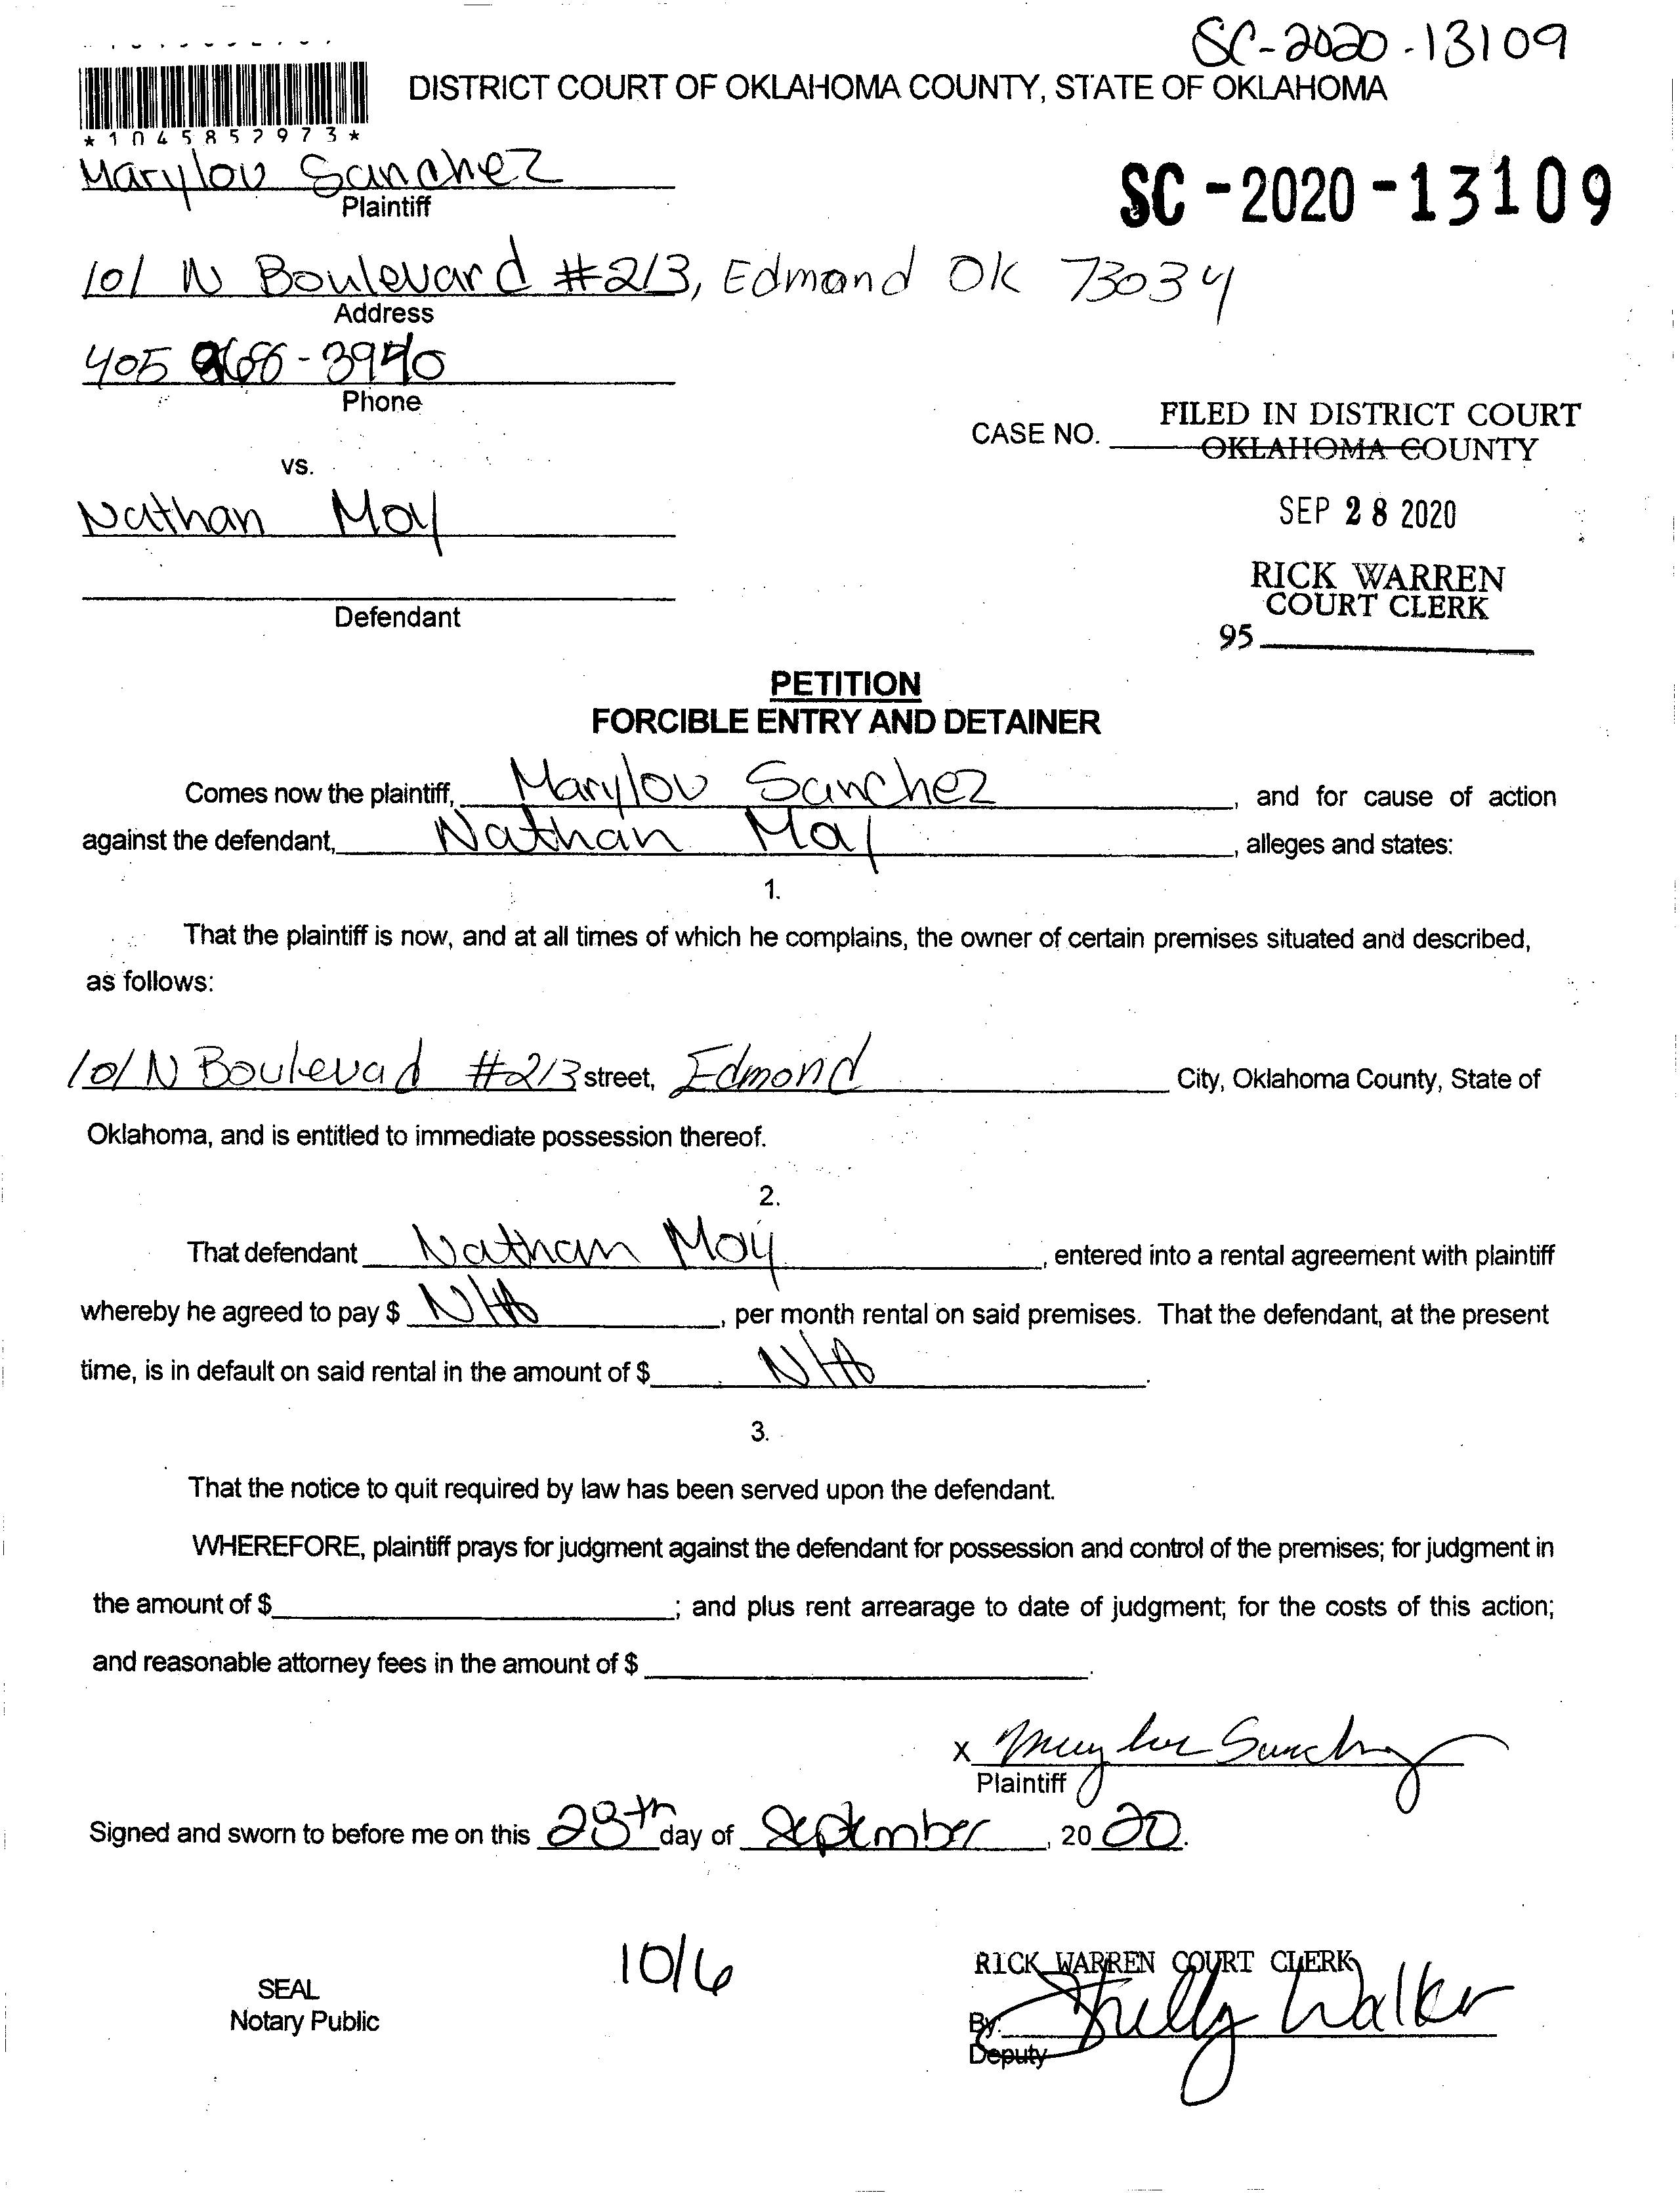 SC-2020-13109
DISTRICT COURT OF OKLAHOMA COUNTY, STATE OF OKLAHOMA
*1045852973*
Marylou Sanchez
Plaintiff
SC-2020-13109
101 N Boulevard #213, Edmond OK 73034
Address
405
Phone
CASE NO.
FILED IN DISTRICT COURT
OKLAHOMA COUNTY
vs.
Nathan May
SEP 28 2020
RICK WARREN
COURT CLERK
Defendant
95
PETITION
FORCIBLE ENTRY AND DETAINER
Comes now the plaintiff, Marylou Sanchez, and for cause of action
against the defendant, Nathan May, alleges and states:
1.
That the plaintiff is now, and at all times of which he complains, the owner of certain premises situated and described,
as follows:
101 N Boulevad #213 street, Edmond City, Oklahoma County, State of
Oklahoma, and is entitled to immediate possession thereof.
2.
That defendant Nathan May, entered into a rental agreement with plaintiff
whereby he agreed to pay $ N/A, per month rental on said premises. That the defendant, at the present
time, is in default on said rental in the amount of $ N/A.
3.
That the notice to quit required by law has been served upon the defendant.
WHEREFORE, plaintiff prays for judgment against the defendant for possession and control of the premises; for judgment in
the amount of $ ; and plus rent arrearage to date of judgment; for the costs of this action;
and reasonable attorney fees in the amount of $ .
X Marylou Sanchez
Plaintiff
Signed and sworn to before me on this 28th day of September, 2020.
10/6
RICK WARREN COURT CLERK
SEAL
Notary Public
By: Shelly Walker
Deputy